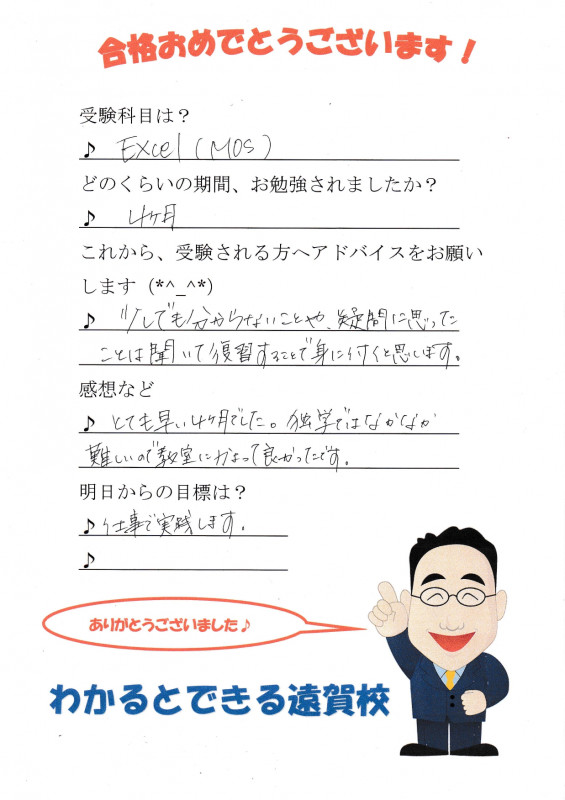 合格おめでとうございます！
受験科目は？
♪ Excel (MOS)
どのくらいの期間、お勉強されましたか？
♪ 4ヶ月
これから、受験される方へアドバイスをお願い
します (*^_^*)
♪ 少しでも分からないことや、疑問に思った
ことは聞いて復習することで身に付くと思います。
感想など
♪ とても早い4ヶ月でした。独学ではなかなか
難しいので教室にかよって良かったです。
明日からの目標は？
♪ 仕事で実践します。
♪
ありがとうございました♪
わかるとできる遠賀校